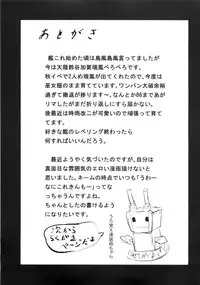 あとがき
艦これ始めた頃は島風島風言ってましたが
今は天龍鈴谷加賀瑞鳳ぺろぺろです。
秋イベで2人目瑞鳳が出てくれたので、今度は
巫女服のまま育てています。ワンパン大破余裕
過ぎて撤退が捗ります〜。なんとか86まであが
リましたがまだ折り返しにすら届かない。
後最近は時雨改二が可愛いので頑張って育て
てます。
好きな艦のレベリング終わったら
何すればいいんだろう。
最近ようやく気づいたのですが、自分は
真面目な雰囲気のエロい漫画描けないと
思う。ネームの時点でいつも「うわー
なにこれきんもー」ってな
っちゃうんですよね。
ちゃんとしたの書けるように
なりたいです。
次から
らくがき
ページだよ!